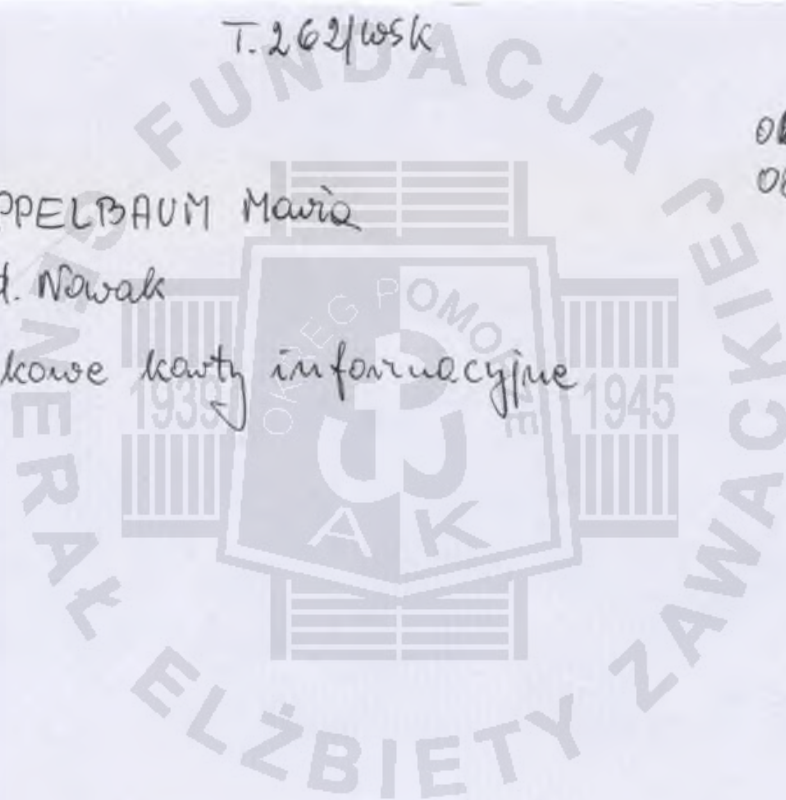 T. 262/WSK
PPELBAUM Maria
d. Nowak
kowe karty informacyjne
FUNDACJA GENERAŁ ELŻBIETY ZAWACKIEJ
OKRĘG POMORZE
1939 1945
AK